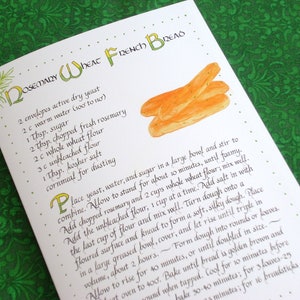 Rosemary Wheat French Bread
2 envelopes active dry yeast
2 c. warm water (100° to 110°)
2 Tbsp. sugar
2 Tbsp. chopped fresh rosemary
2 c. whole wheat flour
3 c. unbleached flour
1 Tbsp. kosher salt
cornmeal for dusting
Place yeast, water, and sugar in a large bowl and stir to
combine. Allow to stand for about 10 minutes, until foamy.
Add chopped rosemary and 2 cups whole wheat flour; mix well.
Add the unbleached flour, 1 cup at a time. Add salt in with
the last cup of flour and mix well. Turn dough onto a
floured surface and knead to form a soft, silky dough. Place
in a large greased bowl, cover, and let rise until triple in
volume, about 2 hours. ~ Form dough into rounds or
Allow to rise for 40 minutes, or until doubled in size. ~
oven to 400°. Bake until bread is golden brown and
sound when tapped. Cool for 10 minutes before
30-40 minutes; for